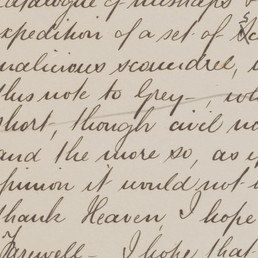 catalogue of mishaps &
expedition of a set of
malicious scoundrel,
this note to Grey—,
short, though civil
and the more so, as
opinion it would not
thank Heaven, I hope
Farewell— I hope that